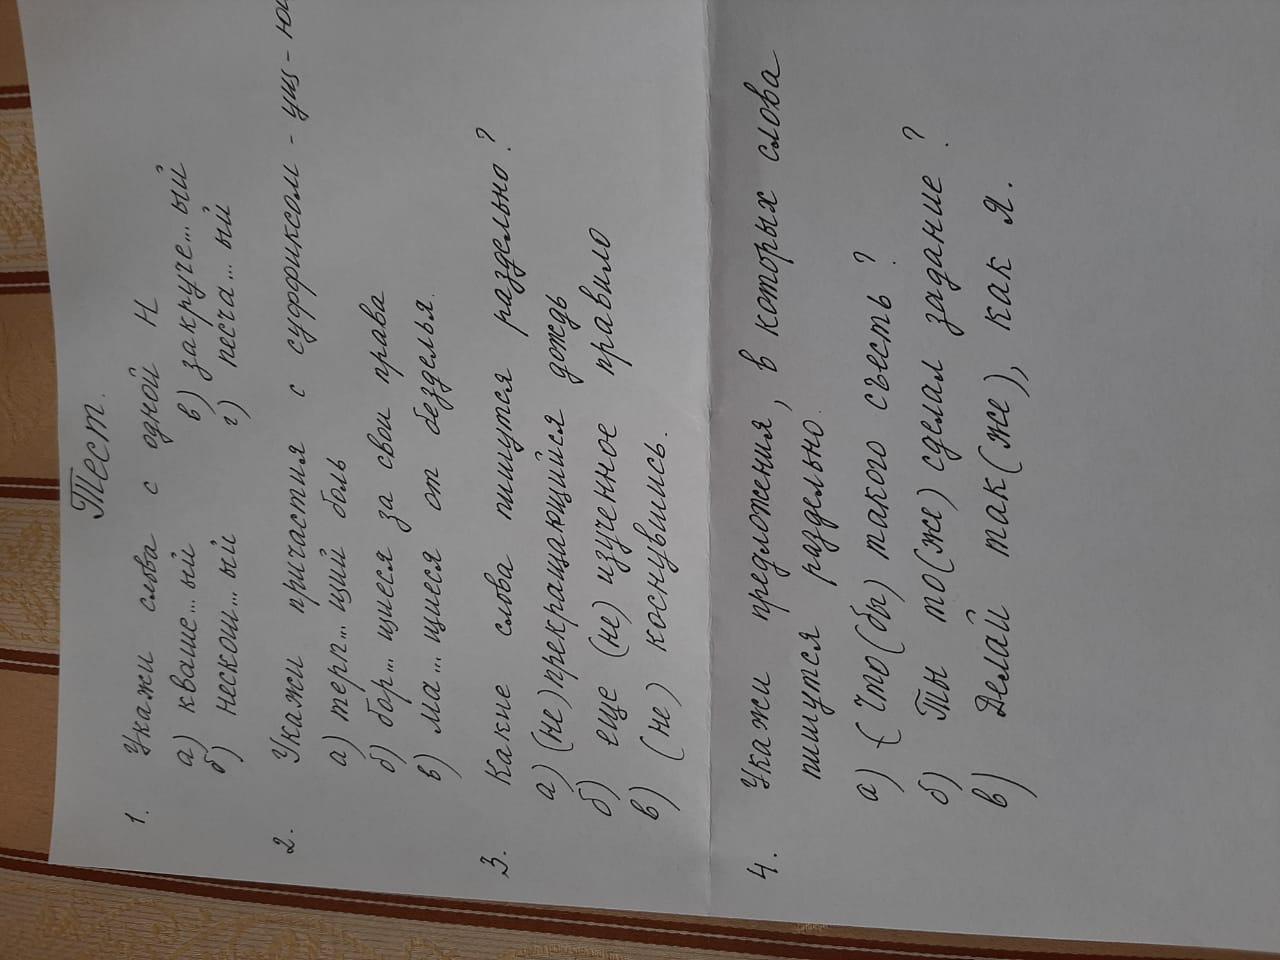 Тест.
1. Укажи слова с одной Н
а) кваше...ый в) закруче...ый
б) нескош...ый г) песча...ый
2. Укажи причастия с суффиксом -ущ-
а) терп...щий боль
б) бор...щиеся за свои права
в) ма...щиеся от безделья.
3. Какие слова пишутся раздельно?
а) (не)прекращающийся дождь
б) еще (не) изученное правило
в) (не) коснувшись.
4. Укажи предложения, в которых слова
пишутся раздельно.
а) (Что(бы) такого съесть?
б) Ты то(же) сделал задание?
в) Делай так(же), как я.